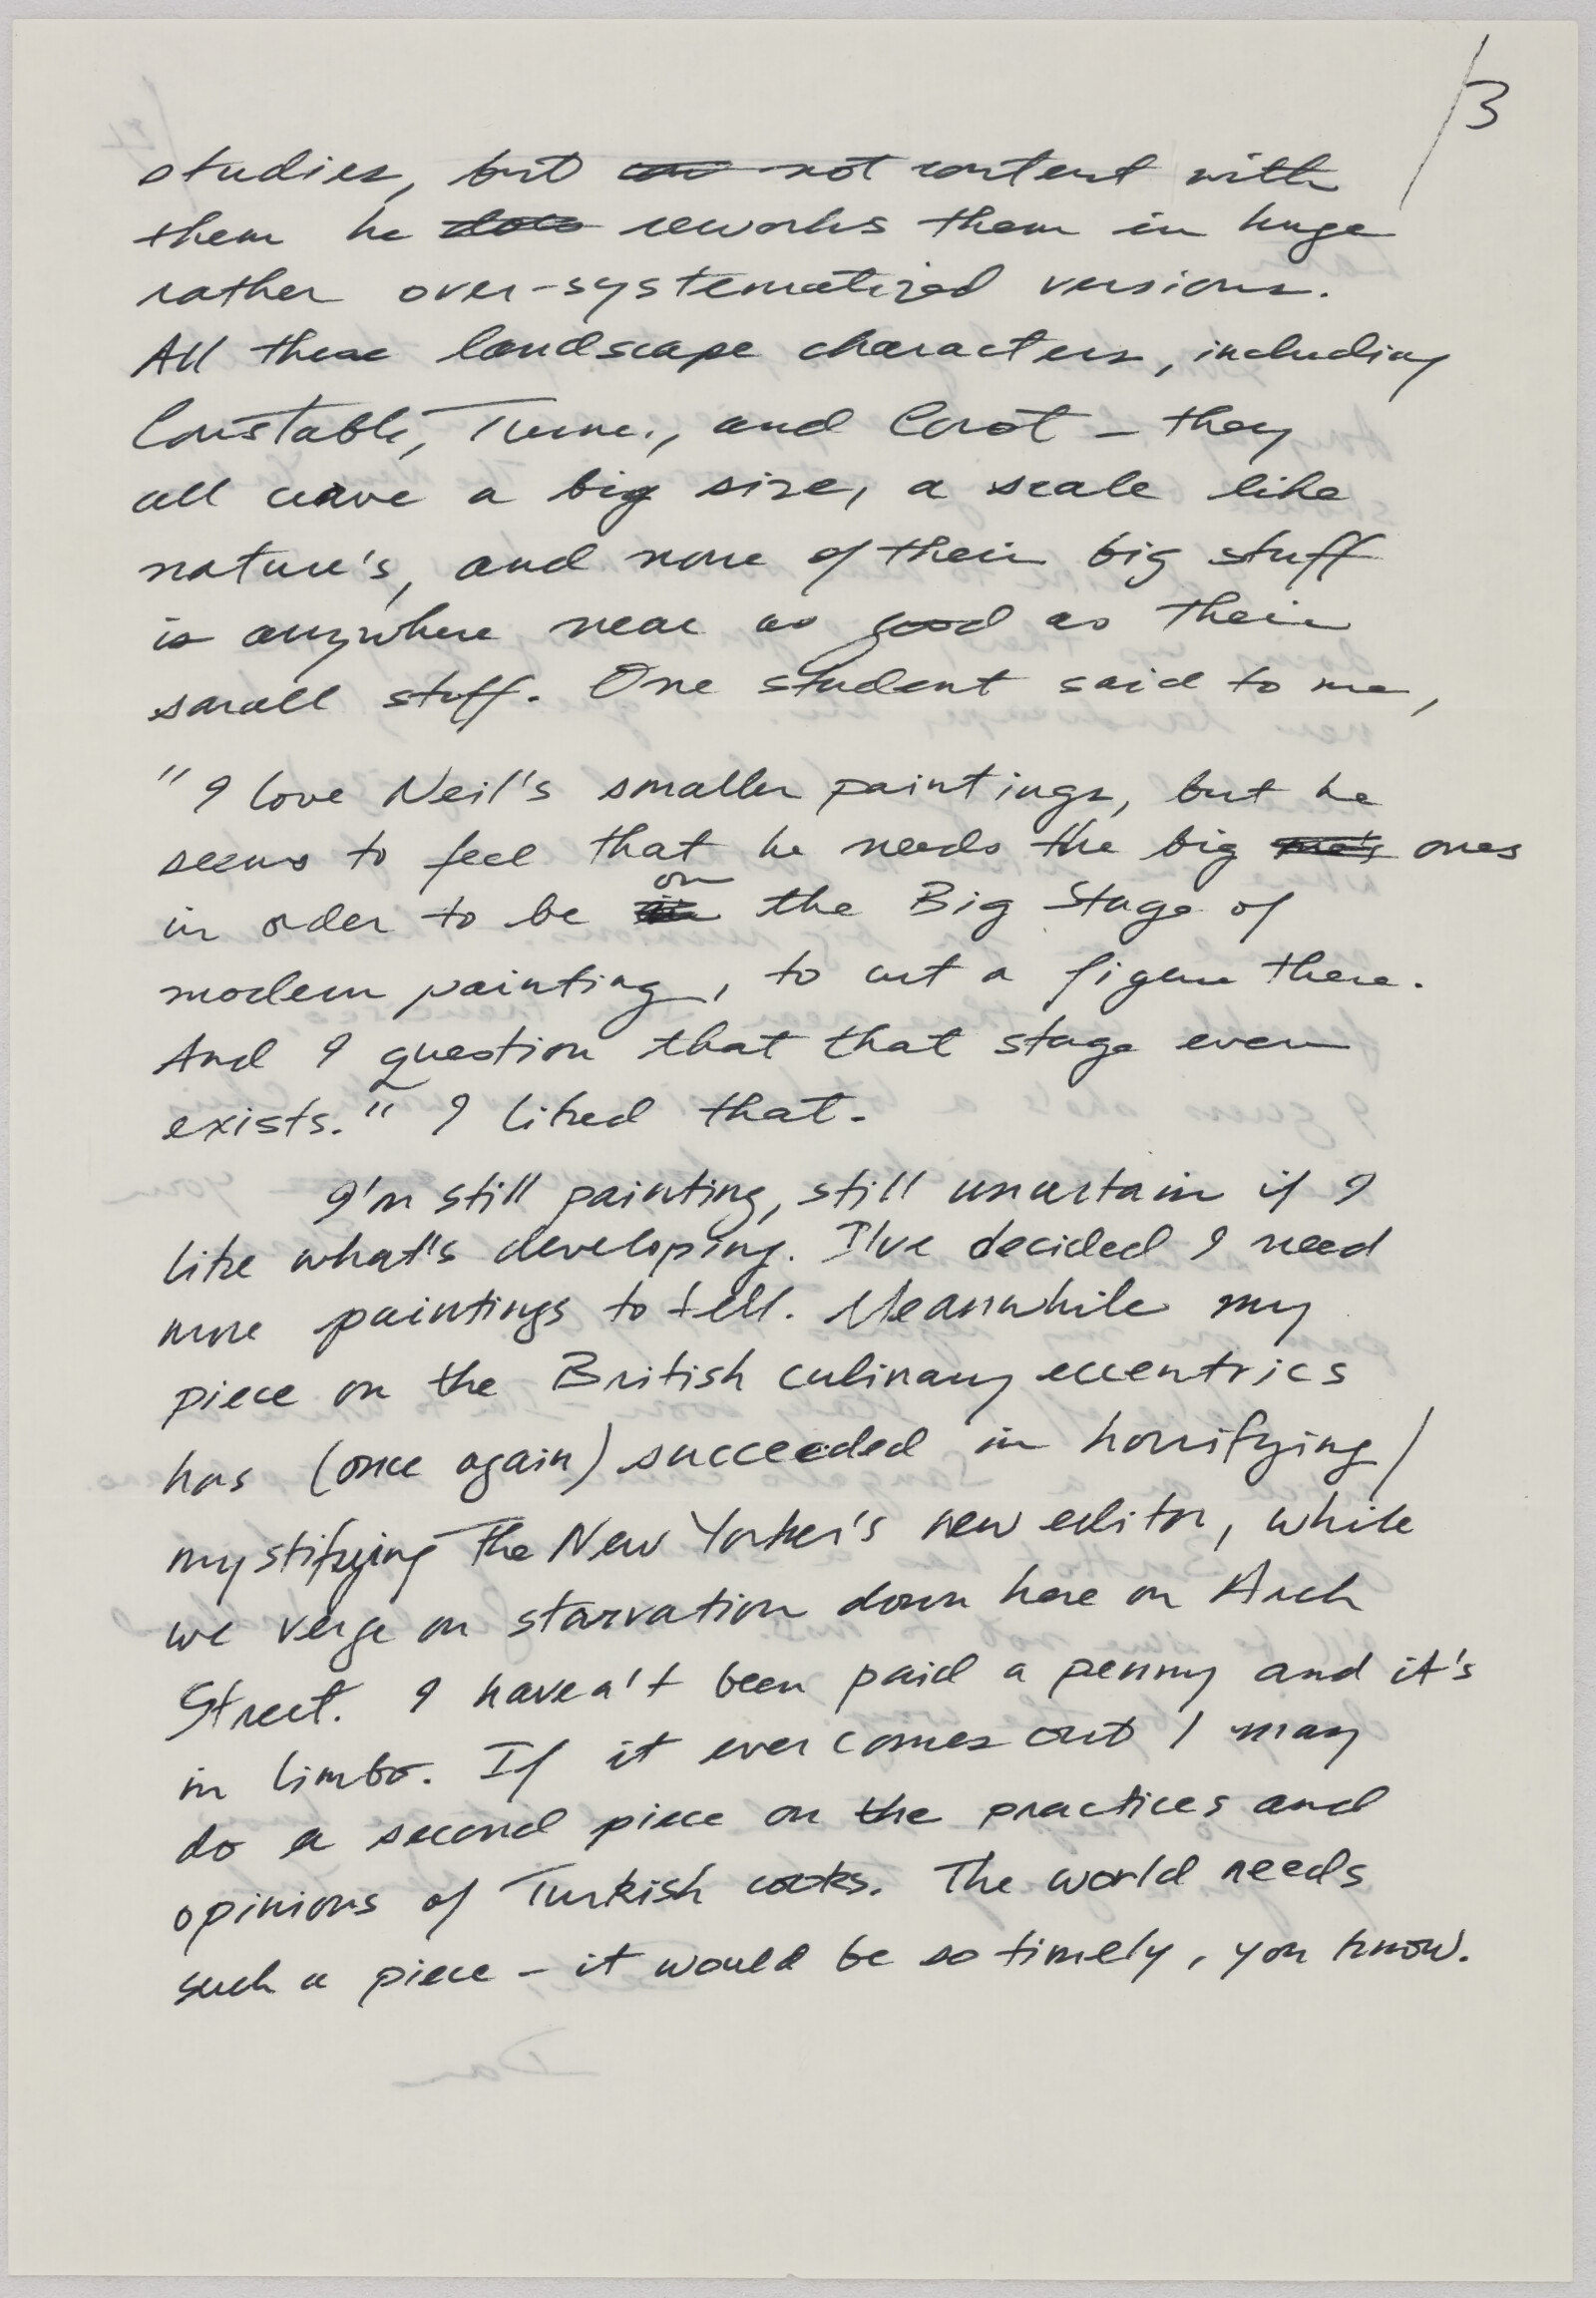 3
studies, but not content with
them he reworks them in huge
rather over-systematized versions.
All these landscape characters, including
Constable, Turner, and Corot – they
all crave a big size, a scale like
nature's, and none of their big stuff
is anywhere near as good as their
small stuff. One student said to me,
"I love Neil's smaller paintings, but he
seems to feel that he needs the big ones
on
in order to be the Big Stage of
modern painting, to cut a figure there.
And I question that that stage even
exists." I liked that.
I'm still painting, still uncertain if I
like what's developing. I've decided I need
more paintings to tell. Meanwhile my
piece on the British culinary eccentrics
has (once again) succeeded in horrifying/
mystifying The New Yorker's new editor, while
we verge on starvation down here on Arch
Street. I haven't been paid a penny and it's
in limbo. If it ever comes out I may
do a second piece on the practices and
opinions of Turkish cooks. The world needs
such a piece – it would be so timely, you know.